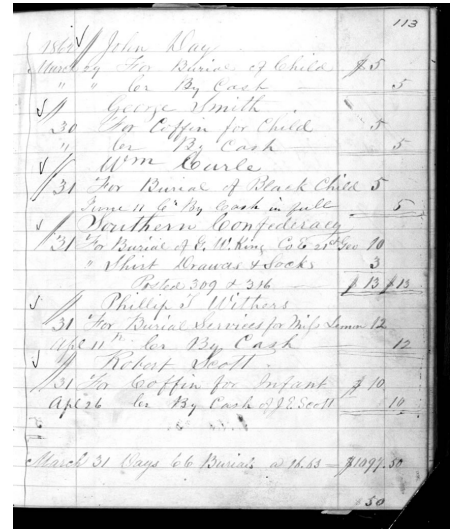 113
1862 John Day
March 29 For Burial of Child $ 5
" " Cr By Cash 5
George Smith
30 For Coffin for Child 5
" Cr By Cash 5
Wm Curle
31 For Burial of Black Child 5
June 11 Cr By Cash in full 5
Southern Confederacy
31 For Burial of G. W. King Co E 21st Geo 10
" Shirt Drawas & Socks 3
Posted 309 & 316 $ 13 $ 13
Phillip T Withers
31 For Burial Services for Mifs 12
Apl 11th Cr By Cash 12
Robert Scott
31 For Coffin for Infant $ 10
Apl 26 Cr By Cash of J E Scott 10
March 31 Days 66 Burials a 16.63 = $1097.50
50